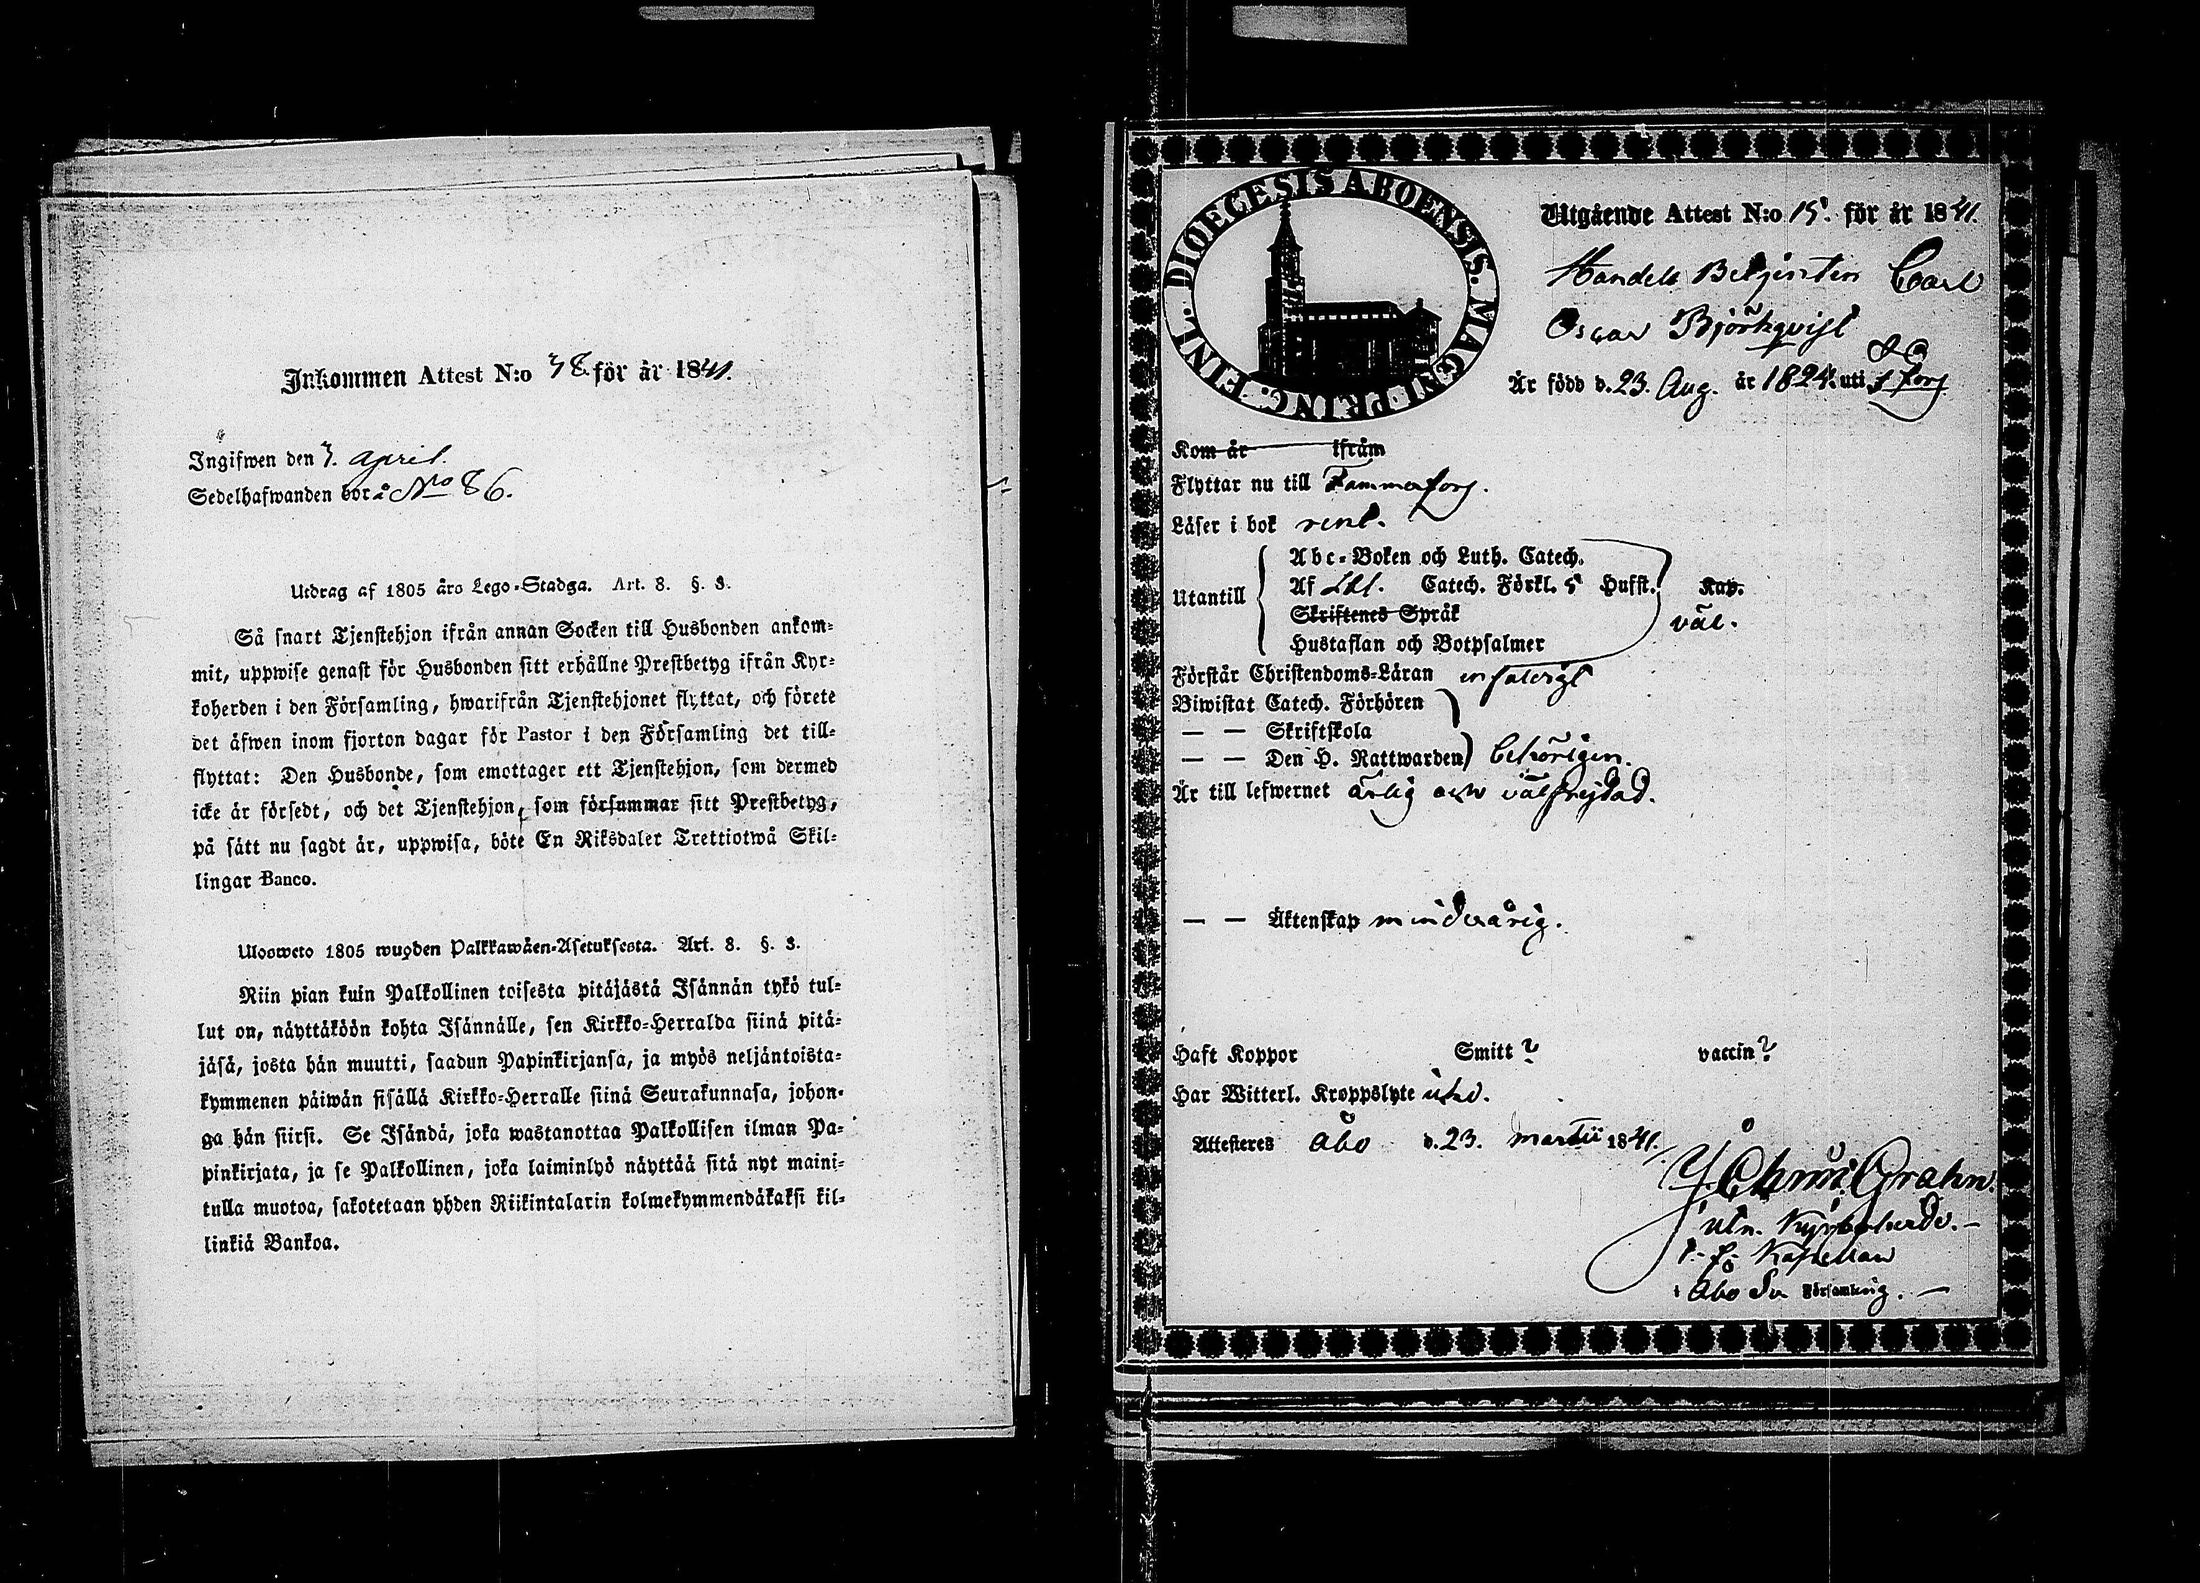 Inkommen Attest N:o 38 för år 1841.
Ingifwen den 3. April.
Sedelhafwanden bor å N:ro 86.
Utdrag af 1805 års Lego-Stadga. Art. 8. §. 3.
Så snart Tjenstehjon ifrån annan Socken till Husbonden ankom-
mit, uppwise genast för Husbonden sitt erhållne Prestbetyg ifrån Kyr-
koherden i den Församling, hwarifrån Tjenstehjonet flyttat, och förete
det äfwen inom fjorton dagar för Pastor i den Församling det till-
flyttat: Den Husbonde, som emottager ett Tjenstehjon, som dermed
icke är försedt, och det Tjenstehjon, som försummar sitt Prestbetyg,
på sätt nu sagdt är, uppwisa, böte En Riksdaler Trettiotwå Skil-
lingar Banco.
Ulosweto 1805 wuoden Palkkawäen-Asetuksesta. Art. 8. §. 3.
Niin pian kuin Palkollinen toisesta pitäjästä Isännän tykö tul-
lut on, näyttäköön kohta Isännälle, sen Kirkko-Herralda siinä pitä-
jäsä, josta hän muutti, saadun Papinkirjansa, ja myös neljäntoista-
kymmenen päiwän sisällä Kirkko-Herralle siinä Seurakunnasa, johon-
ga hän siirsi. Se Isändä, joka wastanottaa Palkollisen ilman Pa-
pinkirjata, ja se Palkollinen, joka laiminlyö näyttää sitä nyt maini-
tulla muotoa, sakotetaan yhden Riikintalarin kolmekymmendäkaksi kil-
linkiä Bankoa.
DIOECESIS ABOENSIS. MAGNI PRINC. FINL.
Utgående Attest N:o 15. för år 1841.
Handels Betjenten Carl
Oscar Björkqvist
Är född d. 23. Aug. år 1824. uti
Kom år ifrån
Flyttar nu till Tammerfors.
Läser i bok rent.
Abc-Boken och Luth. Catech.
Utantill Af Catech. Förkl. 5 Hufst. Kap.
Skriftenes Språk väl.
Hustaflan och Botpsalmer
Förstår Christendoms-Läran enfaldigt
Biwistat Catech. Förhören
— — Skriftskola
— — Den H. Nattwarden behörigen.
Är till lefwernet ärlig och välfrejdad.
— — Äktenskap minderårig.
Haft Koppor Smitt? vaccin?
Har Witterl. Kroppslyte
Attesteres Åbo d. 23. Martii 1841.
Grahn.
Utn. Kyrkoherde. —
t. f. Kapellan
i Åbo Sv. Församling. —